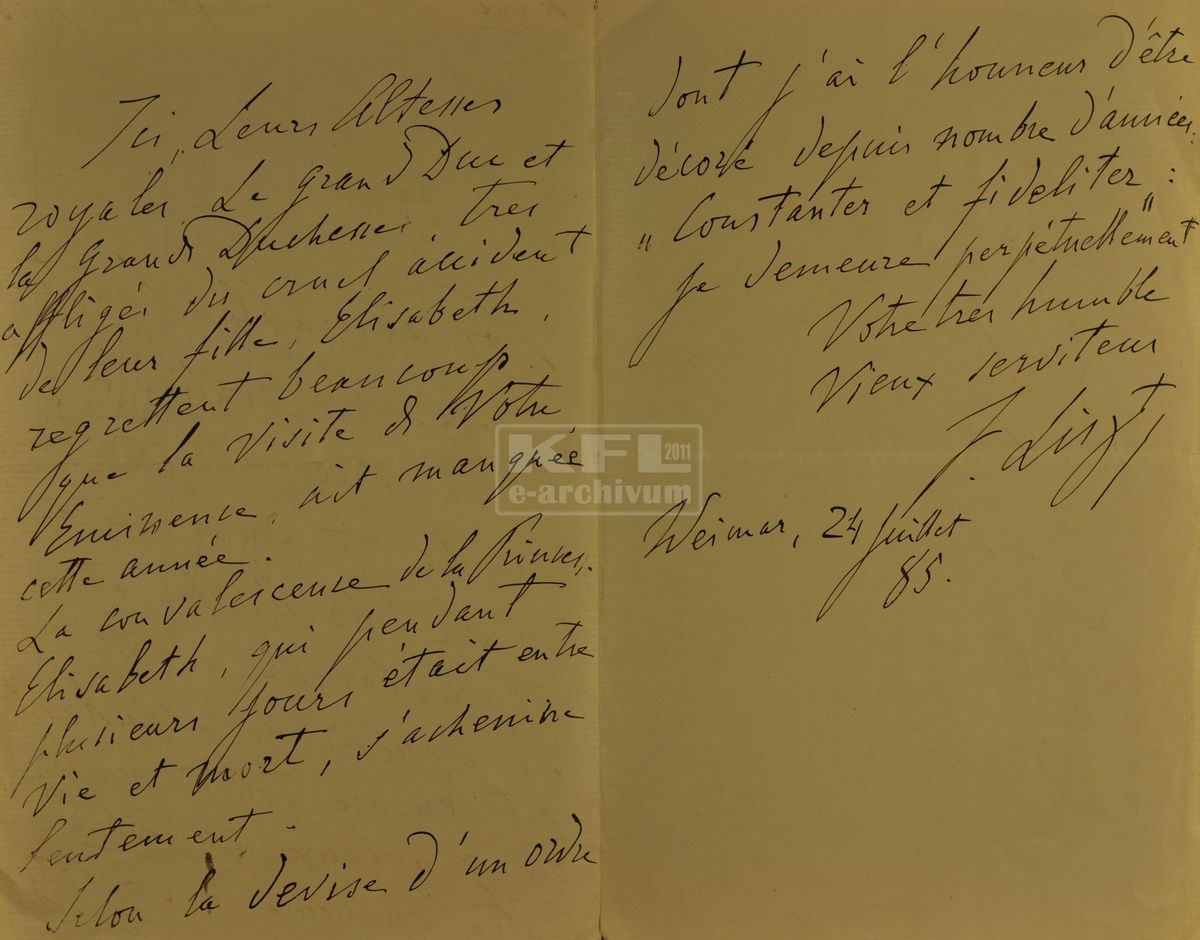 Ici, Leurs Altesses
royales, Le Grand Duc et
la Grande Duchesse, très
affligés du cruel accident
de leur fille, Elisabeth,
regrettent beaucoup
que la visite de Votre
Eminence ait manquée
cette année.
La convalescence de la Princes.
Elisabeth, qui pendant
plusieurs jours était entre
vie et mort, s'achemine
lentement.
Selon la devise d'un ordre
dont j'ai l'honneur d'être
décoré depuis nombre d'années:
„Constanter et fideliter":
je demeure perpétuellement
Votre très humble
vieux serviteur
F. Liszt
Weimar, 24 Juillet
85.
KFL 2011
e-archivum